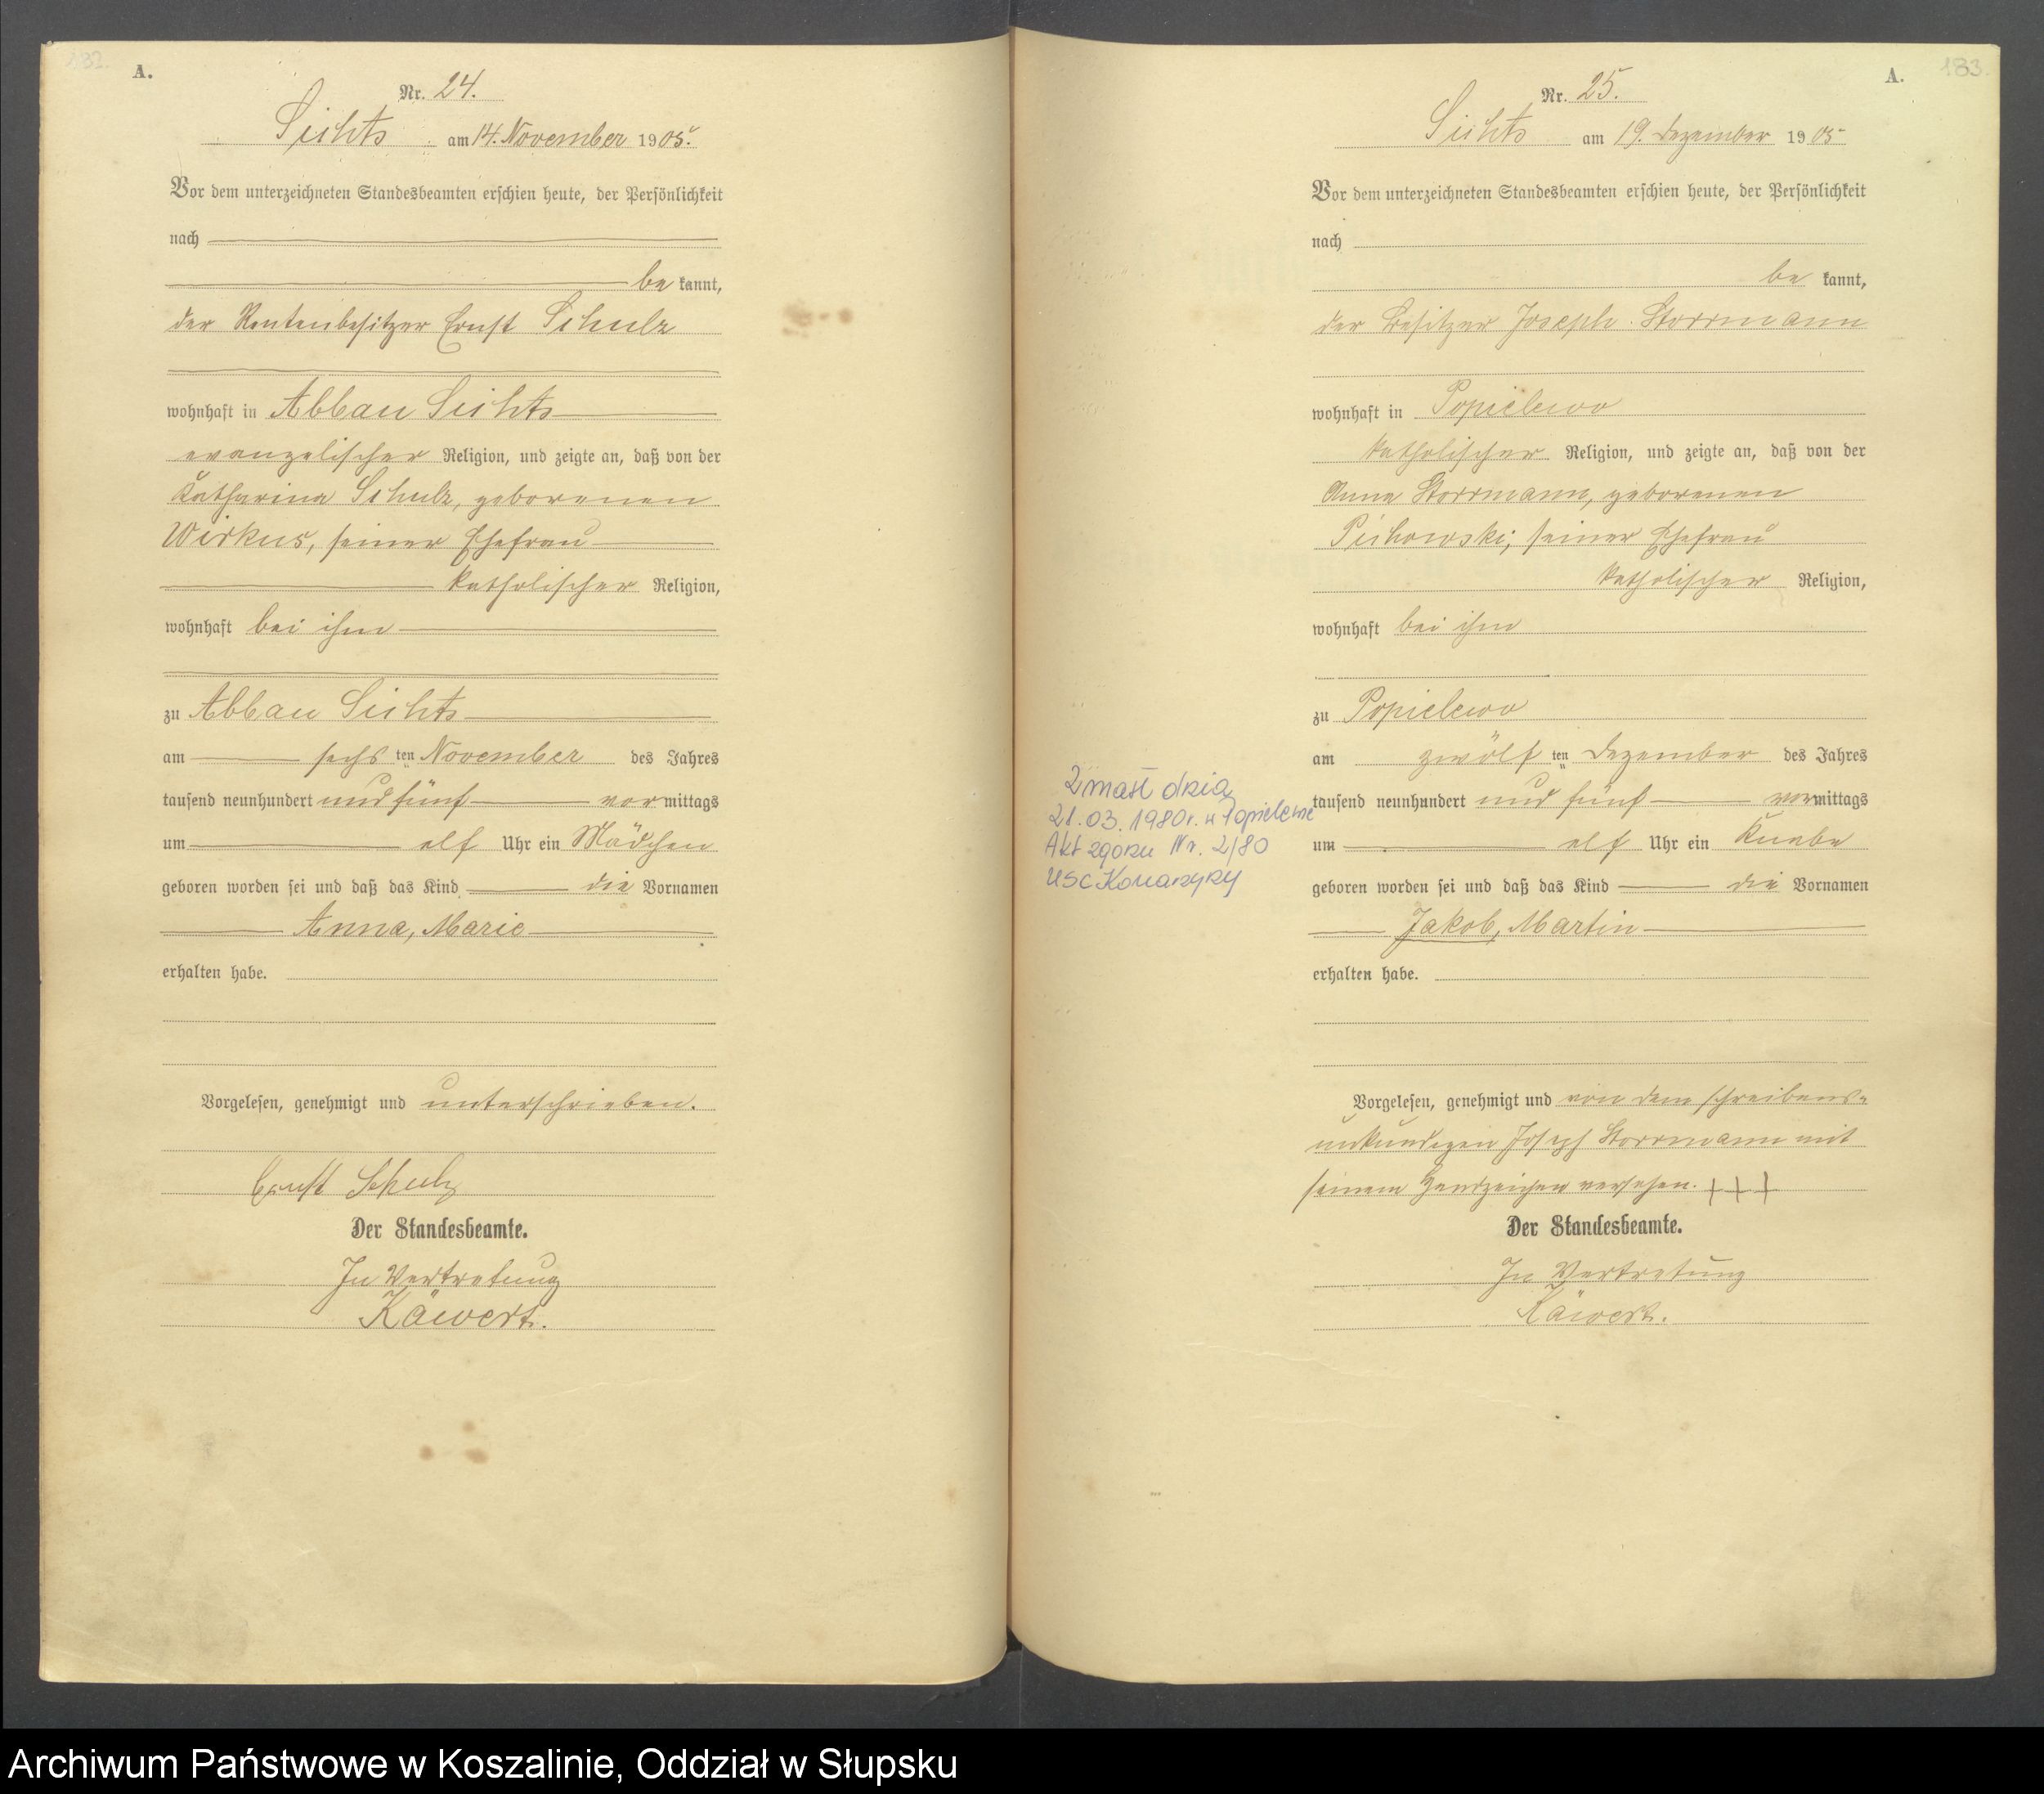 183.
A.
Nr. 24.
Sichts am 14. November 1905.
Vor dem unterzeichneten Standesbeamten erschien heute, der Persönlichkeit
nach
be kannt,
der Rentenbesitzer Ernst Schulz
wohnhaft in Abbau Sichts
evangelischer Religion, und zeigte an, daß von der
Katharina Schulz, geborenen
Wirkus, seiner Ehefrau
katholischer Religion,
wohnhaft bei ihm
zu Abbau Sichts
am sechs ten November des Jahres
tausend neunhundert und fünf vormittags
um elf Uhr ein Mädchen
geboren worden sei und daß das Kind die Vornamen
Anna, Marie
erhalten habe.
Vorgelesen, genehmigt und unterschrieben.
Ernst Schulz
Der Standesbeamte.
In Vertretung
Käwert.
A.
183.
Nr. 25.
Sichts am 19. Dezember 1905
Vor dem unterzeichneten Standesbeamten erschien heute, der Persönlichkeit
nach
be kannt,
der Besitzer Joseph Storrmann
wohnhaft in Popielewo
katholischer Religion, und zeigte an, daß von der
Anna Storrmann, geborenen
Pichowski, seiner Ehefrau
katholischer Religion,
wohnhaft bei ihm
zu Popielewo
am zwölf ten Dezember des Jahres
tausend neunhundert und fünf vormittags
um elf Uhr ein Knabe
geboren worden sei und daß das Kind die Vornamen
Jakob, Martin
erhalten habe.
Vorgelesen, genehmigt und von dem schreibens-
unkundigen Joseph Storrmann mit
seinem Handzeichen versehen. +++
Der Standesbeamte.
In Vertretung
Käwert.
Zmarł dnia
21.03.1980r. w Popielewie
Akt zgonu Nr. 2/80
USC Konarzyny
Archiwum Państwowe w Koszalinie, Oddział w Słupsku